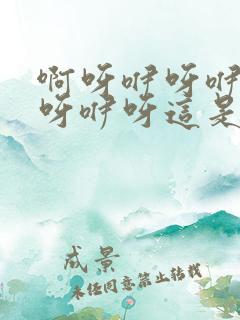 啊呀咿呀咿
呀咿呀這是
成景
未经同意禁止转载